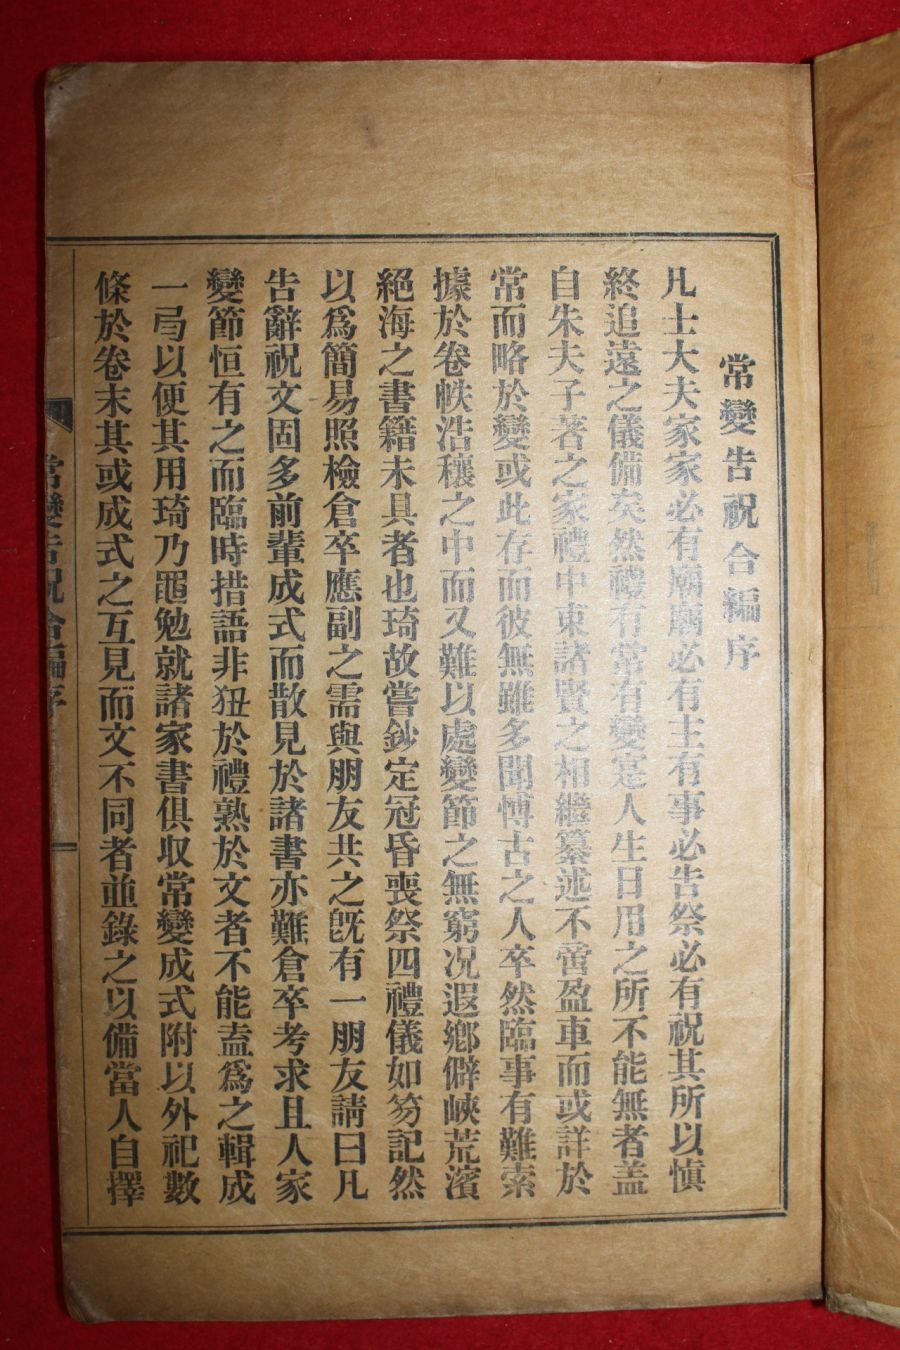 常變告祝合編序
凡士大夫家家必有廟廟必有主有事必告祭必有祝其所以愼
終追遠之儀備矣然禮有常有變寔人生日用之所不能無者盖
自朱夫子著之家禮中東諸賢之相繼纂述不啻盈車而或詳於
常而略於變或此存而彼無雖多聞博古之人卒然臨事有難索
據於卷帙浩穰之中而又難以處變節之無窮况遐鄕僻峽荒濱
絕海之書籍未具者也琦故嘗鈔定冠昏喪祭四禮儀如笏記然
以爲簡易照檢倉卒應副之需與朋友共之旣有一朋友請曰凡
告辭祝文固多前輩成式而散見於諸書亦難倉卒考求且人家
變節恒有之而臨時措語非狃於禮熟於文者不能盍爲之輯成
一局以便其用琦乃黽勉就諸家書俱収常變成式附以外祀數
條於卷末其或成式之互見而文不同者並錄之以備當人自擇
常變告祝合編序